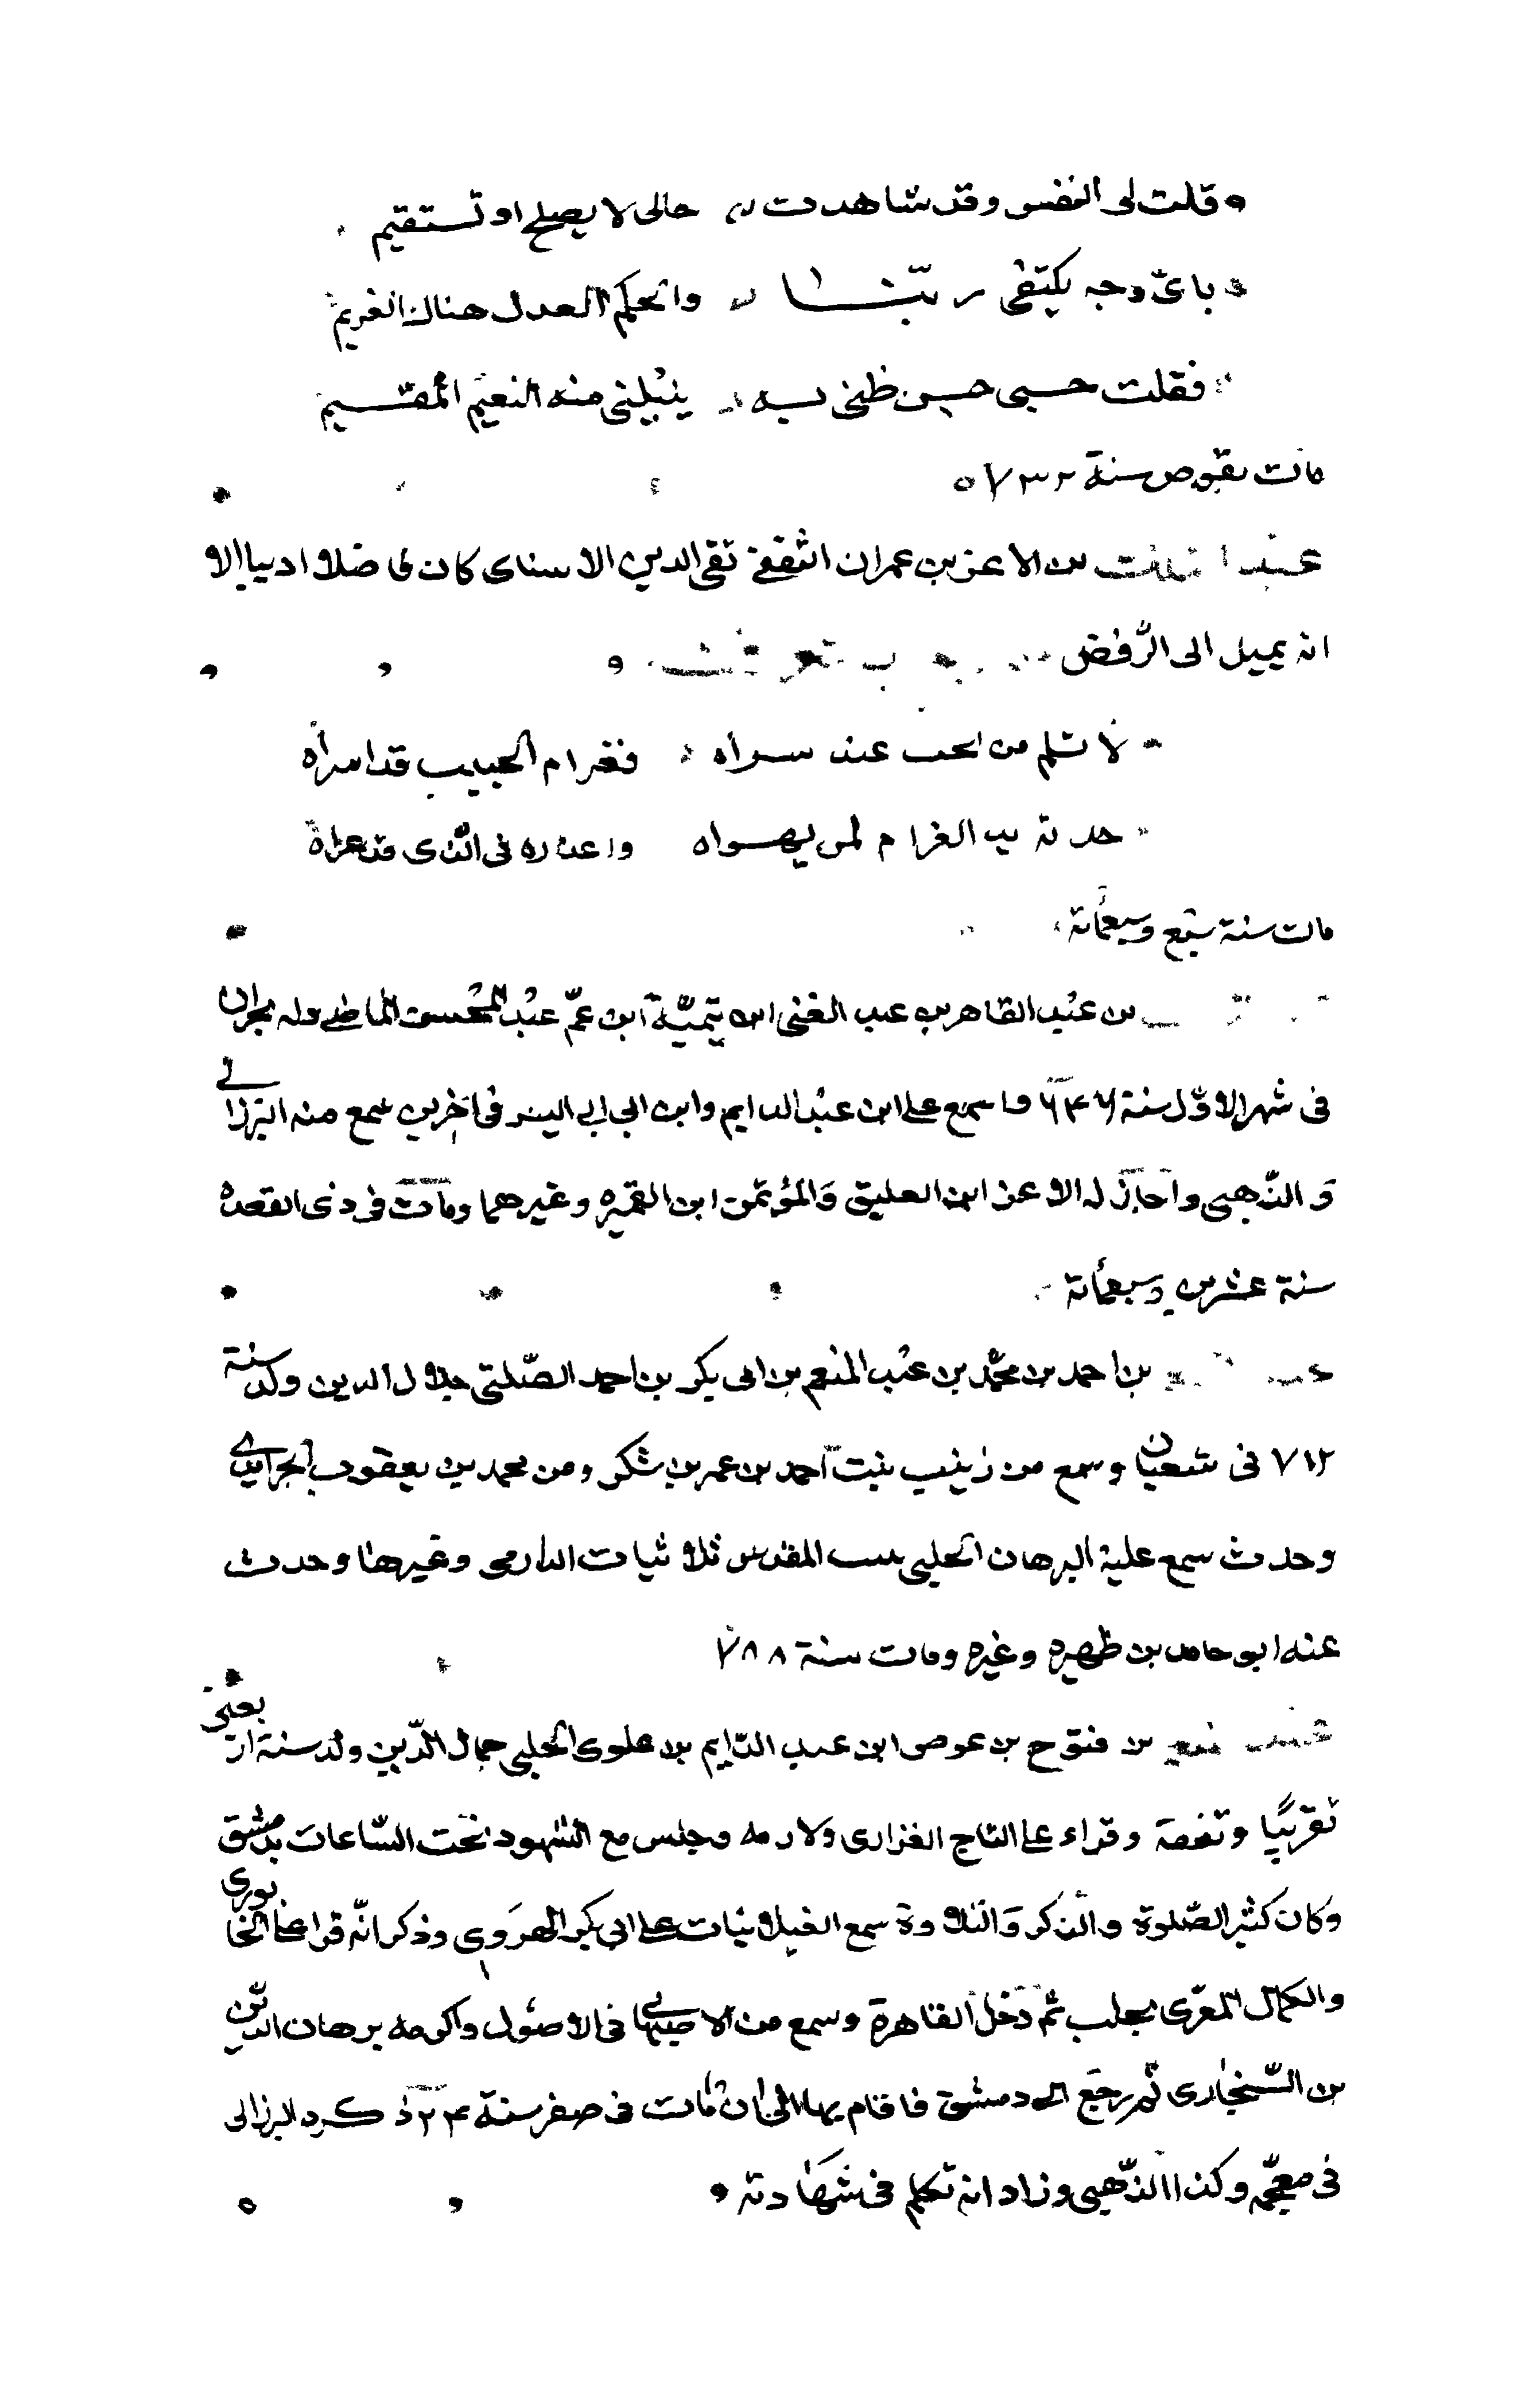 قلت لى النفس وقد شاهدت حالى لا يصلح او تستقيم
باىّ وجه يكتفى ربّنا والحكم العدل هناك الغريم
فقلت حسبى حسن ظنى به ينيلنى منه النعيم المقيم
مات بقوص سنة ٧٣٢
عبد بن الاعز بن عمران الثقفى تقى الدين الاسناى كان فاضلا اديبا الا
انه يميل الى الرّفض
لا تلم من احب عند سراه فغرام الحبيب قد اسراه
حدثه الغرام لمن يهواه واعذاره فى الذى قد عراه
مات سنة سبع وسبعمائة
بن عبد القاهر بن عبد الغنى ابن تيميّة ابن عمّ عبد المحسن الماضى وله بحران
فى شهر الاوّل سنة ٦٤٦ سمع على ابن عبد الدايم وابن ابى اليسر فى آخرين سمع منه البرزالى
و الذّهبى واجاز له الاعز ابن العليق والمؤتمن ابن القميره وغيرهما ومات فى ذى القعدة
سنة عشرين وسبعمائة
بن احمد بن محمّد بن عبد المنعم بن ابى بكر بن احمد الصّلتى جلال الدين ولد سنة
٧١٢ فى شعبان وسمع من زينب بنت احمد بن عمر بن شكر ومن محمد بن يعقوب الجرايدى
وحدث سمع عليه البرهان الحلبى ببيت المقدس ثلاثيات الدارمى وغيرها وحدث
عنه ابو حامد بن ظهيره وغيره ومات سنة ٧٨٨
بن فتوح بن عوض ابن عبد الدّايم بن علوى الحلبى جمال الدّين ولد سنة اربعين
تقريبًا وتفقه وقراء على التاج الفزارى ولازمه وجلس مع الشهود تحت السّاعات بدمشق
وكان كثير الصّلوة والذكر والتلاوة سمع الغيلانيات على ابى بكر الهروى وذكر انّه قرا على الخابورى
والكمال المعرّى بحلب ثم دخل القاهرة وسمع من الاصبهانى فى الاصول واكرمه برهان الدين
بن السّنجارى ثم رجع الى دمشق فاقام بها الى ان مات فى صفر سنة ٧٢٤ ذكره البرزالى
فى معجمه وكذا الذّهبى وزاد انه تكلم فى شهادته